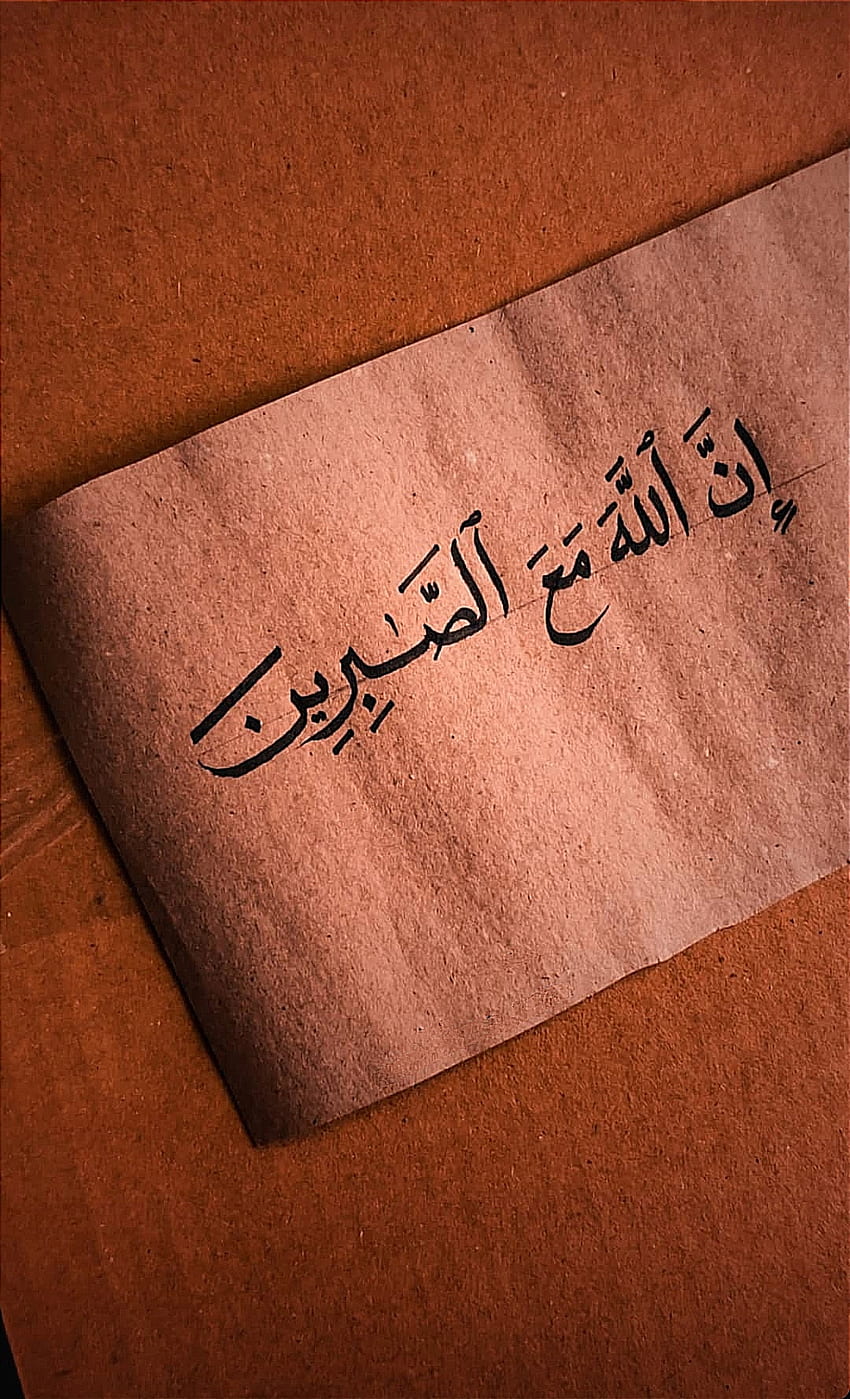 إِنَّ ٱللَّهَ مَعَ ٱلصَّـٰبِرِينَ